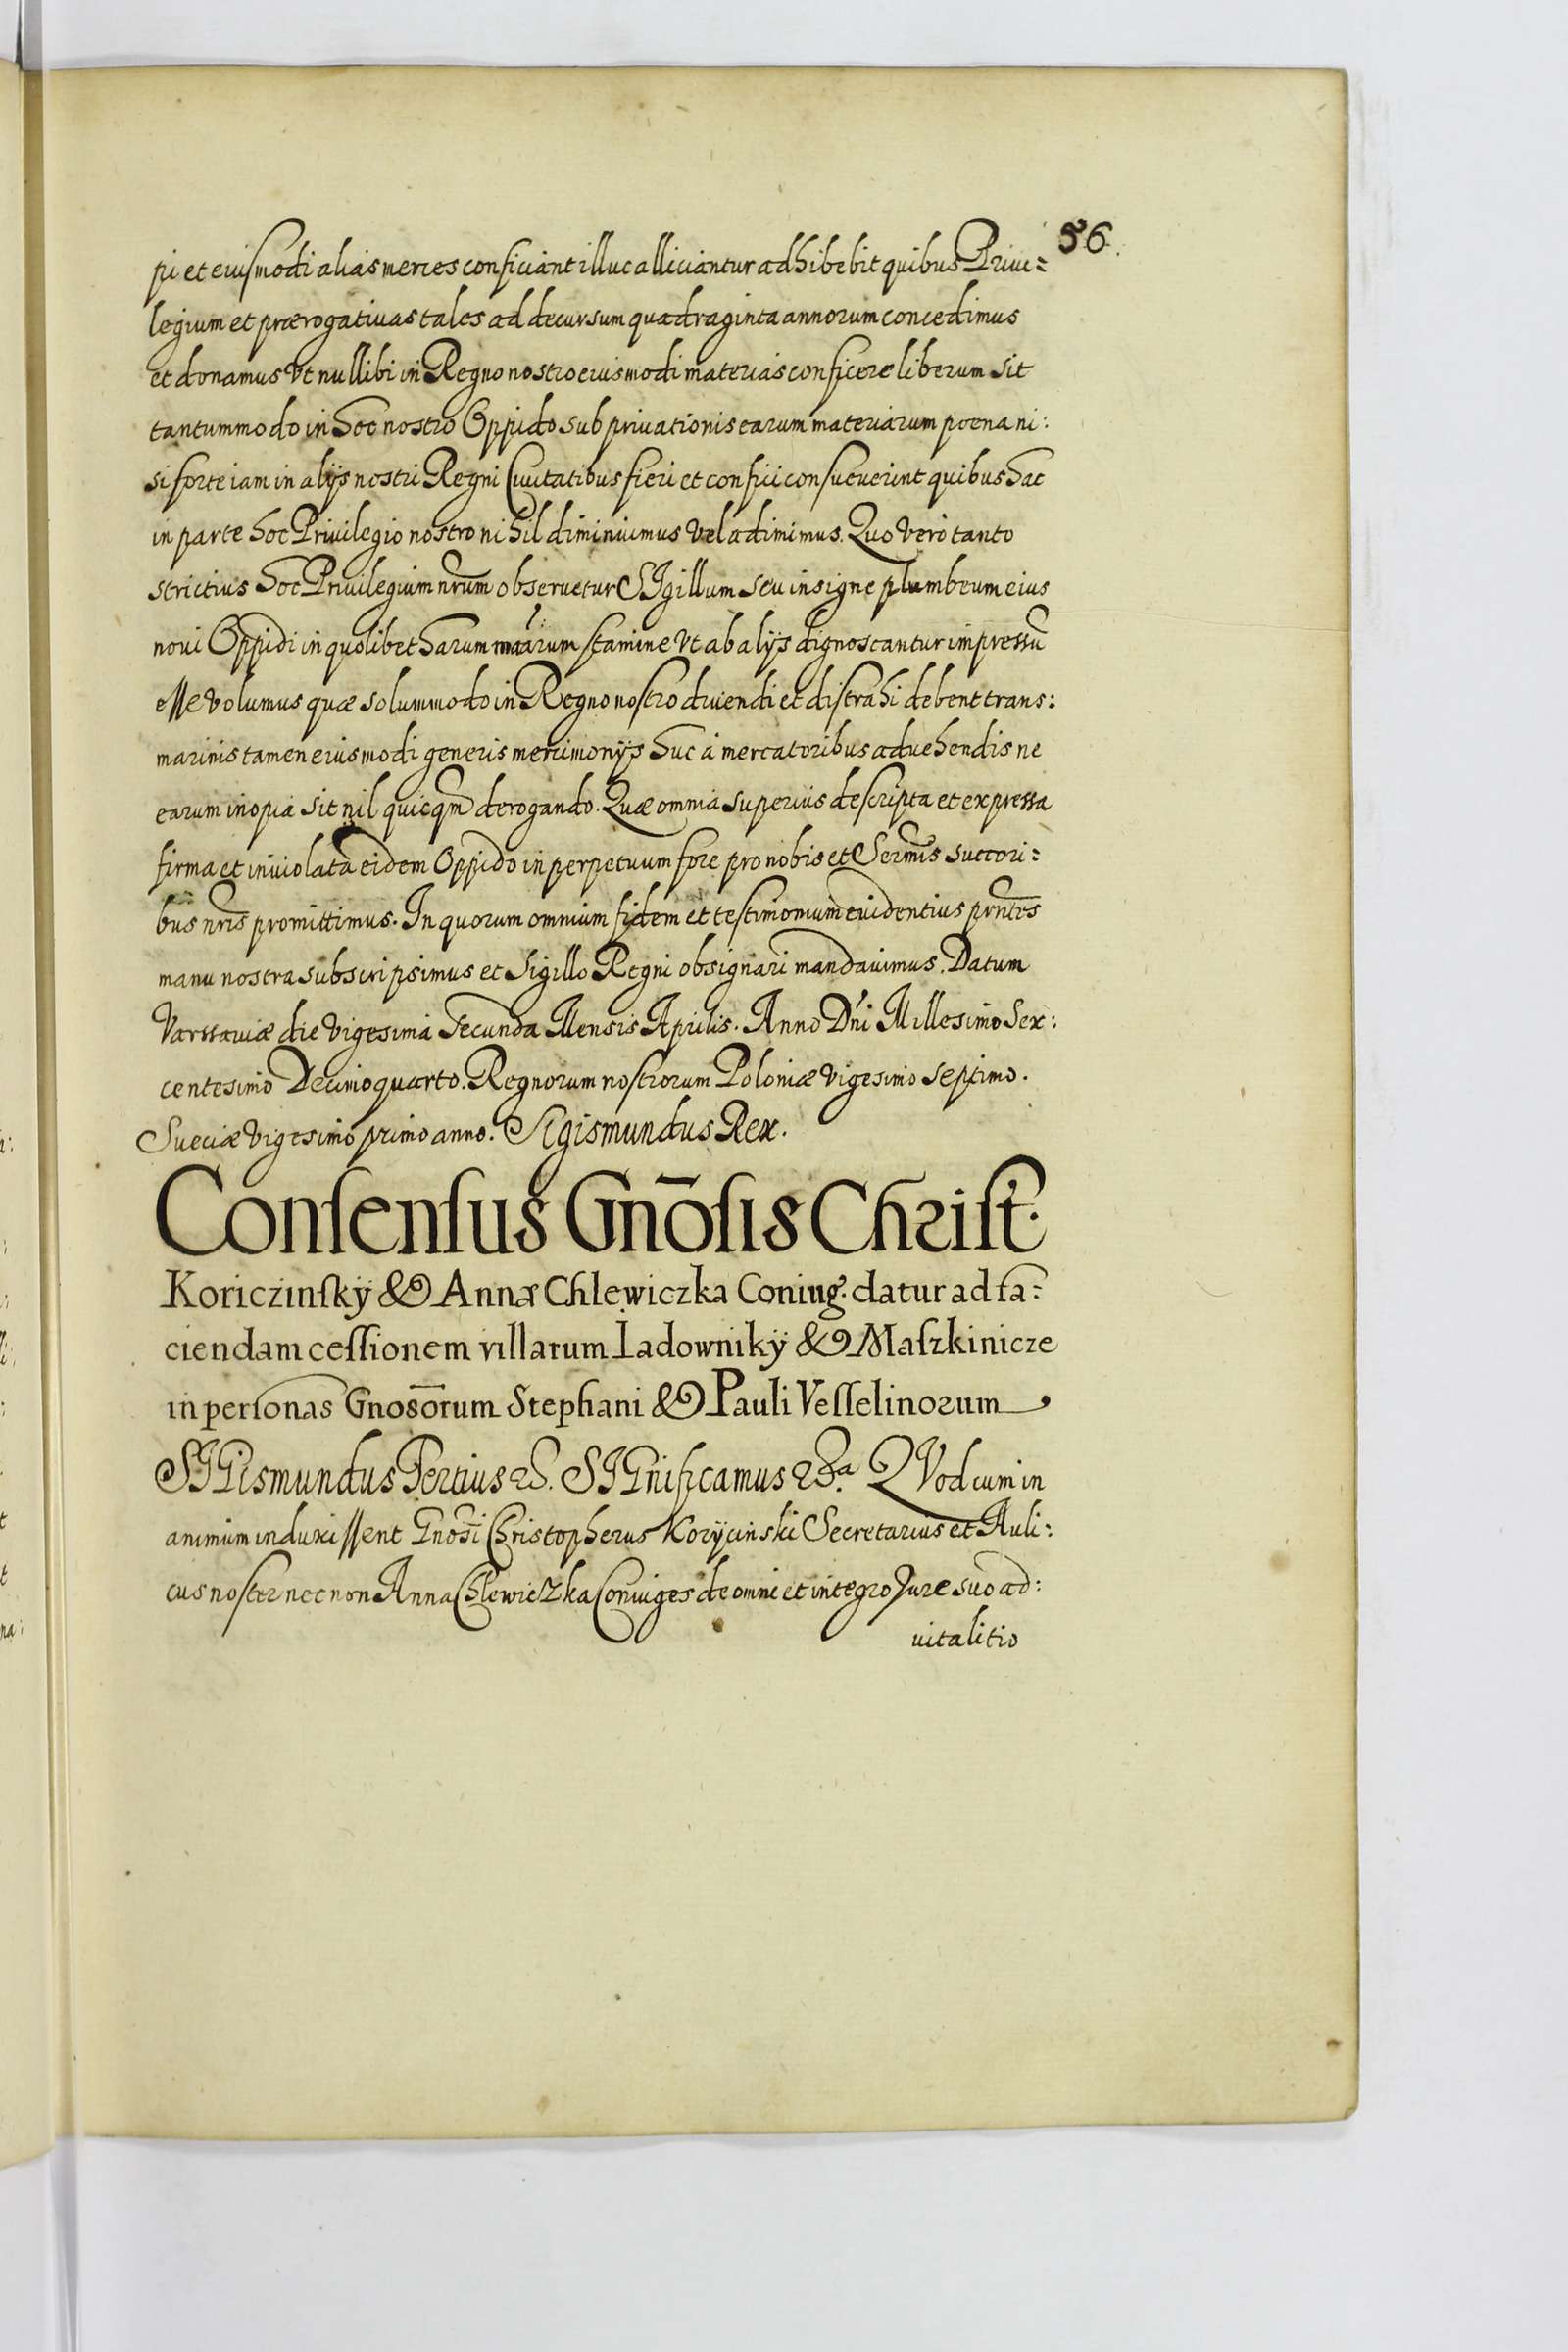 56.
pi et eiusmodi alias merces conficiant illuc alliciantur adhibebit quibus Priui=
legium et prærogatiuas tales ad decursum quadraginta annorum concedimus
et donamus Vt nullibi in Regno nostro eiusmodi materias conficere liberum sit
tantummodo in hoc nostro Oppido sub priuationis earum materiarum poena ni:
si forte iam in alijs nostri Regni Ciuitatibus fieri et confici consueuerint quibus hac
in parte hoc Priuilegio nostro nihil diminuimus Vel adimimus. Quo Vero tanto
strictius hoc Priuilegium nrum obseruetur SIgillum seu insigne plumbeum eius
noui Oppidi in quolibet harum maarum stamine Vt ab alijs dignoscantur impressu
esse Volumus quæ solummodo in Regno nostro diuendi et distrahi debent trans:
marinis tamen eiusmodi generis mercimonijs huc à mercatoribus aduehendis ne
earum inopia sit nil quicqm derogando. Quæ omnia superius descripta et expressa
firma et inuiolata eidem Oppido in perpetuum fore pro nobis et Sermis succori=
bus nris promittimus. In quorum omnium fidem et testimonium euidentius prntes
manu nostra subscripsimus et Sigillo Regni obsignari mandauimus. Datum
Varssauiæ die Vigesima Secunda Mensis Aprilis. Anno Dni Millesimo Sex:
centesimo Decimoquarto. Regnorum nostrorum Poloniæ Vigesimo septimo.
Sueciæ Vigesimo primo anno. SIgismundus Rex.
Conſenſus Gnōſis Chriſt.
Koriczinſkÿ & Annæ Chlewiczka Coniug. datur ad fa=
ciendam ceſſionem villarum Ladownikÿ & Maſzkinicze
in perſonas Gnosōrum Stephani & Pauli Veſſelinorum
SIGismundus Tertius &. SIGnificamus &a. QVod cum in
animum induxissent Gnosi Christopherus Korÿcinski Secretarius et Auli:
cus noster nec non Anna Chlewiczka Coniuges de omni et integro Jure suo ad:
uitalitio